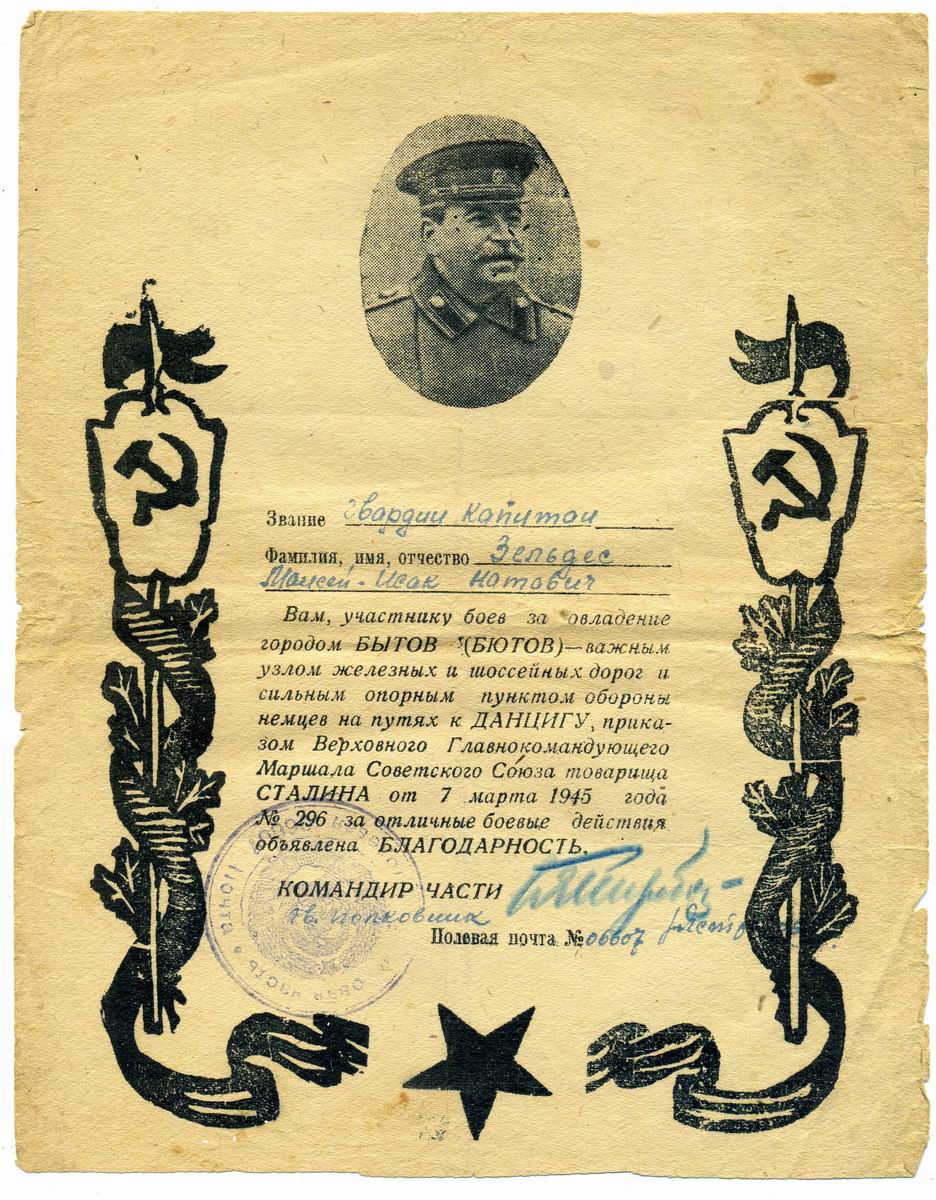 Звание Гвардии Капитан
Фамилия, имя, отчество Зельдес
Моисей-Исак Натович
Вам, участнику боев за овладение
городом БЫТОВ (БЮТОВ)—важным
узлом железных и шоссейных дорог и
сильным опорным пунктом обороны
немцев на путях к ДАНЦИГУ, прика-
зом Верховного Главнокомандующего
Маршала Советского Союза товарища
СТАЛИНА от 7 марта 1945 года
№ 296 за отличные боевые действия
объявлена БЛАГОДАРНОСТЬ.
КОМАНДИР ЧАСТИ
гв. полковник
Полевая почта № 06607
Полевая почта * войсковая часть